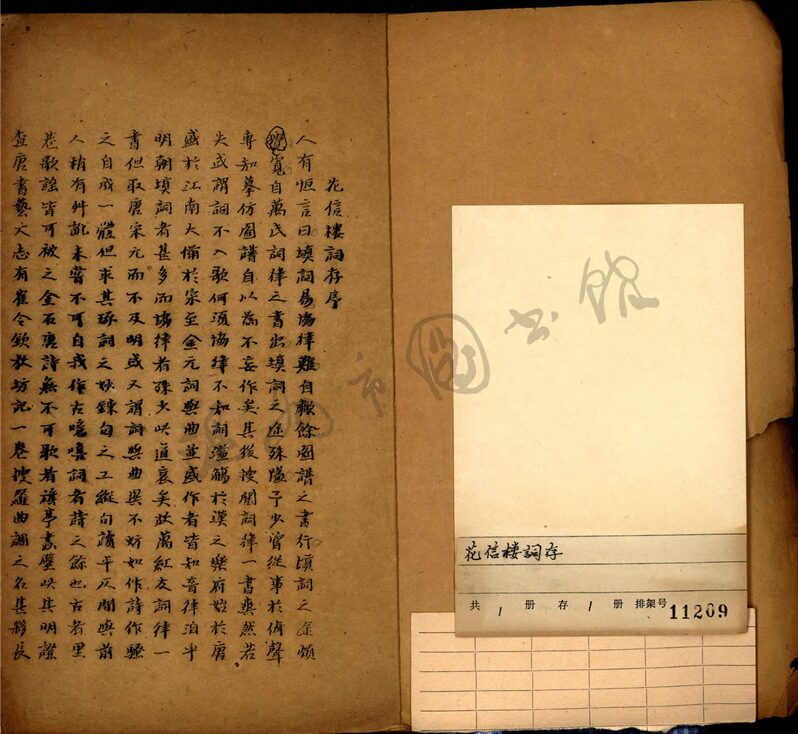 花信樓詞存序
人有恒言曰填詞易協律難自歗餘圖譜之書行填詞之途頗
寬自萬氏詞律之書出填詞之途殊隘予少嘗從事於倚聲
專知摹仿圖譜自以為不妄作矣其後披閱詞律一書爽然若
失或謂詞不入歌何須協律不知詞濫觴於漢之樂府始於唐
盛於江南大備於宋至金元詞與曲並盛作者皆知音律洎乎
明朝填詞者甚多而協律者殊少此道衰矣故萬紅友詞律一
書但取唐宋元而不及明或又謂詞與曲異不妨如作詩作騷
之自成一體但求其琢詞之妙鍊句之工縱句讀平仄間與前
人稍有舛訛未嘗不可自我作古噫嘻詞者詩之餘也古者里
巷歌謠皆可被之金石唐詩無不可歌者旗亭畫壁此其明證
查唐書藝文志有崔令欽教坊記一卷搜羅曲調之名甚夥長
花信楼詞存
共 1 册 存 1 册 排架号 11209
市圖书館